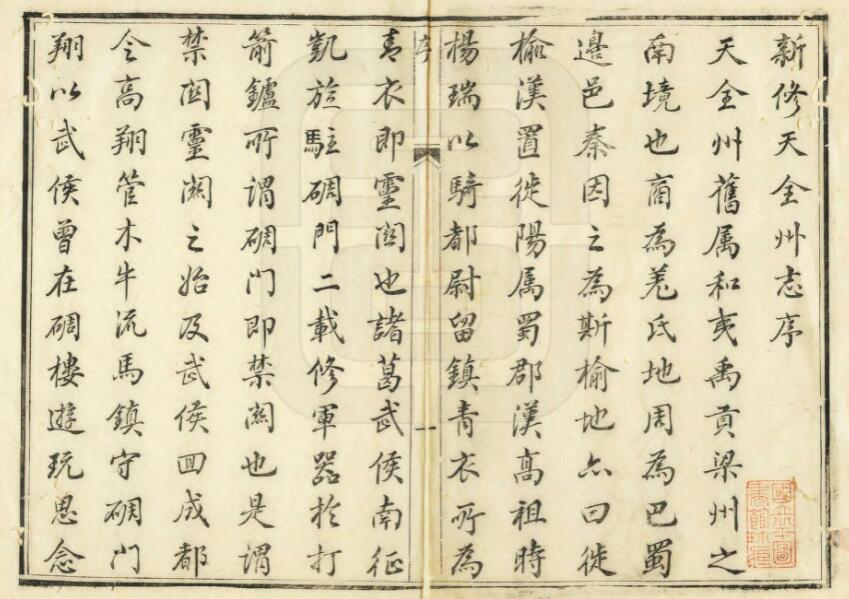 新修天全州志序
天全州舊属和夷禹貢梁州之
南境也商為羌氏地周為巴蜀
邊邑秦因之為斯榆地亦曰徙
榆漢置徙陽属蜀郡漢高祖時
楊瑞以騎都尉留鎮青衣所為
序
一
青衣即靈関也諸葛武侯南征
凱旋駐碉門二載修軍器於打
箭鑪所謂碉門即禁関也是謂
禁関靈関之始及武侯回成都
令高翔管木牛流馬鎮守碉門
翔以武侯曾在碉樓遊玩思念
國立北平圖
書館收藏